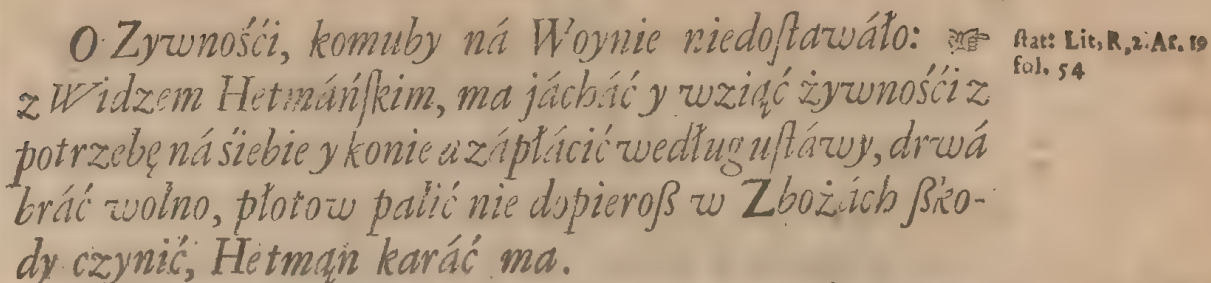 O Zywnośći, komuby ná Woynie niedoſtawáło: ☞
z Widzem Hetmáńſkim, ma jácháć y wziąć żywnośći z
potrzebę ná śiebie y konie a zápłácić według uſtáwy, drwá
bráć wolno, płotow palić nie dopieroß w Zbożách ßko-
dy czynić, Hetmąn káráć ma.
ſtat: Lit, R, 2. Ar. 19
fol. 54